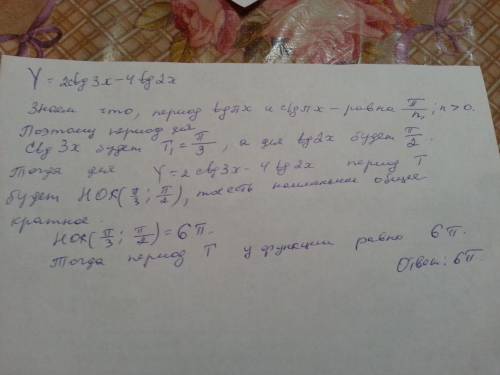 Y = 2ctg3x - 4tg2x
Знаем что, период tgnx и ctgnx - равна π/n; n>0.
Поэтому период для
ctg 3x будет T₁ = π/3, а для tg2x будет π/2.
Тогда для Y = 2ctg3x - 4tg2x период T
будет НОК(π/3; π/2), то есть наименьшее общее
кратное.
НОК(π/3; π/2) = 6π.
Тогда период T у функции равно 6π.
Ответ: 6π.